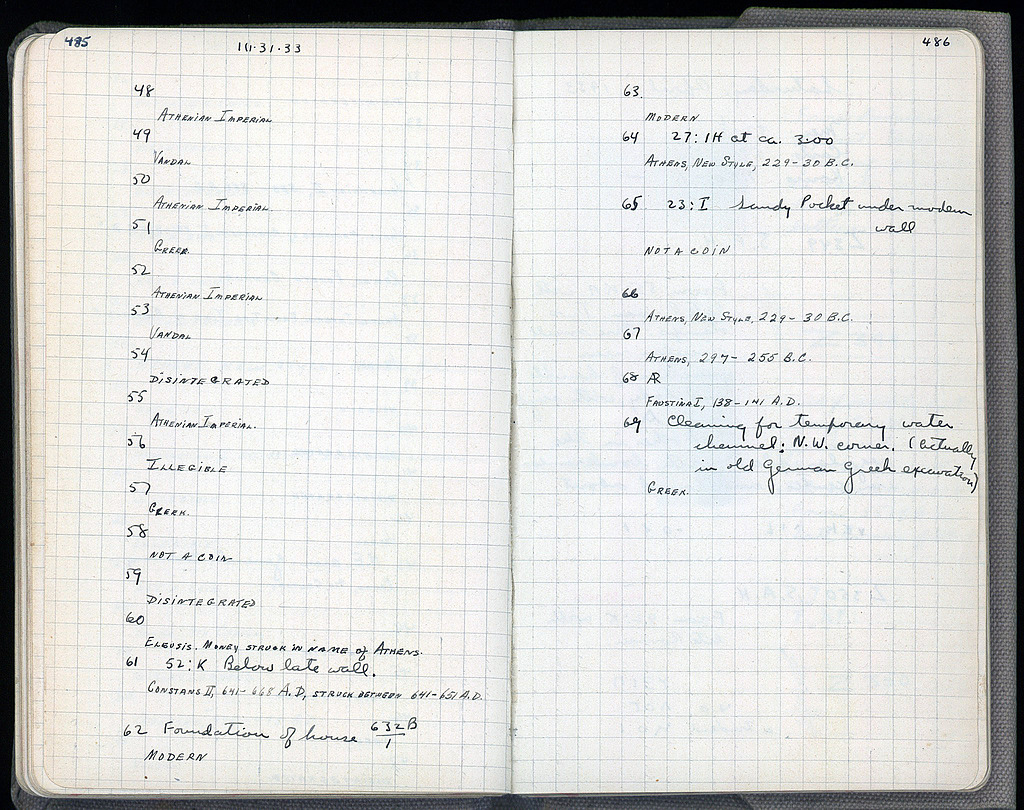 485
10.31.33
48
ATHENIAN IMPERIAL
49
VANDAL
50
ATHENIAN IMPERIAL.
51
GREEK.
52
ATHENIAN IMPERIAL
53
VANDAL
54
DISINTEGRATED
55
ATHENIAN IMPERIAL.
56
ILLEGIBLE
57
GREEK.
58
NOT A COIN
59
DISINTEGRATED
60
ELEUSIS. MONEY STRUCK IN NAME OF ATHENS.
61 52:K Below late wall.
CONSTANS II, 641-668 A.D, STRUCK BETWEEN 641-651 A.D.
62 Foundation of house 632B/1
MODERN
486
63.
MODERN
64 27:IH at ca. 3.00
ATHENS, NEW STYLE, 229-30 B.C.
65 23:I Sandy Pocket under modern
wall
NOT A COIN
66
ATHENS, NEW STYLE, 229-30 B.C.
67
ATHENS, 297-255 B.C.
68 AR
FAUSTINA I, 138-141 A.D.
69 Cleaning for temporary water
channel: N.W. corner. (actually
in old German Greek excavation)
GREEK.